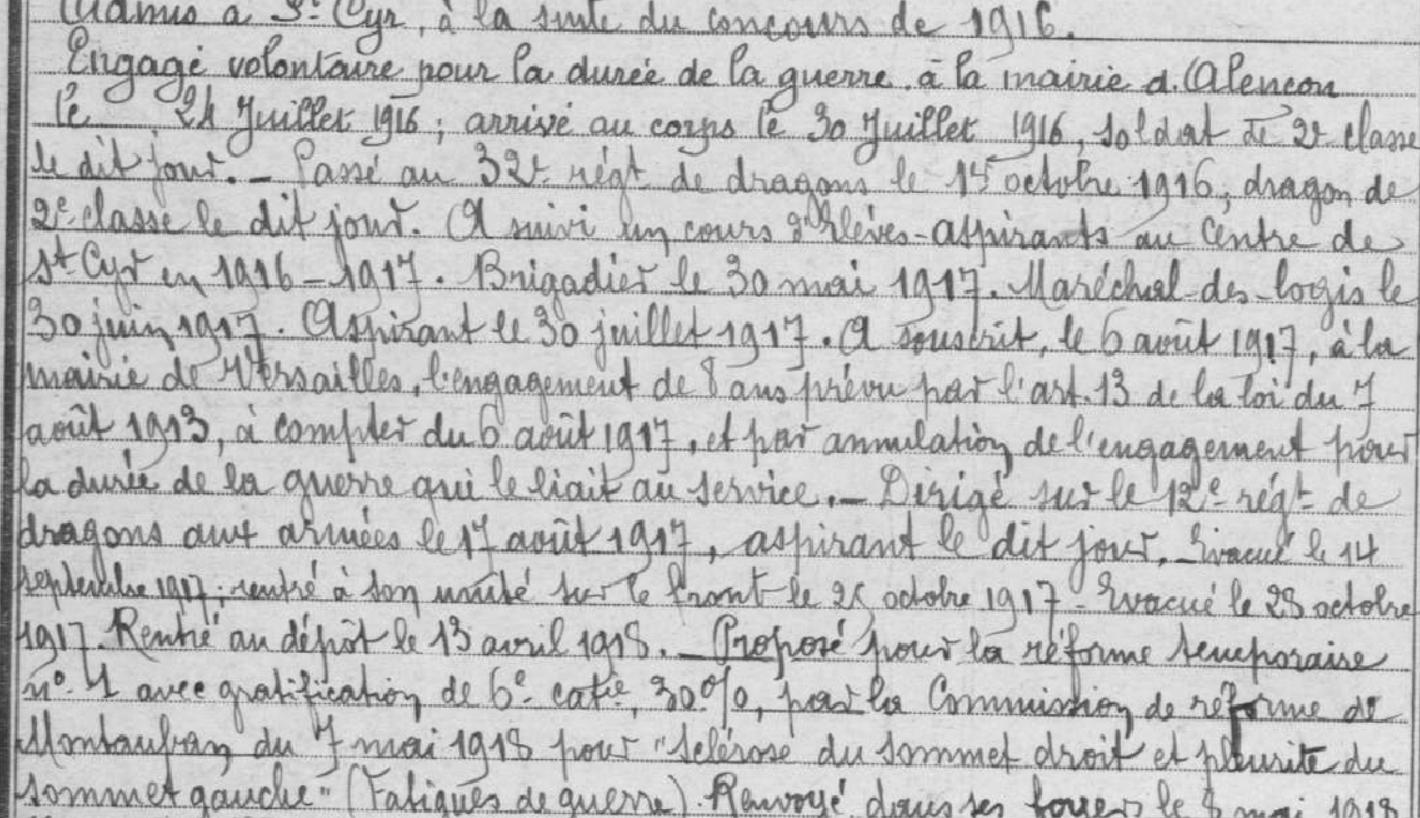 Admis à St Cyr, à la suite du concours de 1916.
Engagé volontaire pour la durée de la guerre à la mairie d'Alençon
le 24 Juillet 1916; arrivé au corps le 30 Juillet 1916, soldat de 2e classe
le dit jour. _ Passé au 32e régt de dragons le 15 octobre 1916, dragon de
2e classe le dit jour. A suivi un cours d'élèves-aspirants au Centre de
St Cyr en 1916-1917. Brigadier le 30 mai 1917. Maréchal-des-logis le
30 juin 1917. Aspirant le 30 juillet 1917. A souscrit, le 6 août 1917, à la
mairie de Versailles, l'engagement de 8 ans prévu par l'art. 13 de la loi du 7
août 1913, à compter du 6 août 1917, et par annulation de l'engagement pour
la durée de la guerre qui le liait au service. _ Dirigé sur le 12e régt de
dragons aux armées le 17 août 1917, aspirant le dit jour. Evacué le 14
septembre 1917; rentré à son unité sur le front le 25 octobre 1917 - Evacué le 28 octobre
1917. Rentré au dépôt le 13 avril 1918. _ Proposé pour la réforme temporaire
n° 1 avec gratification de 6e catie, 30%, par la Commission de réforme de
Montauban, du 7 mai 1918 pour "sclérose du sommet droit et pleurite du
sommet gauche" (Fatigues de guerre). Renvoyé dans ses foyers le 8 mai 1918